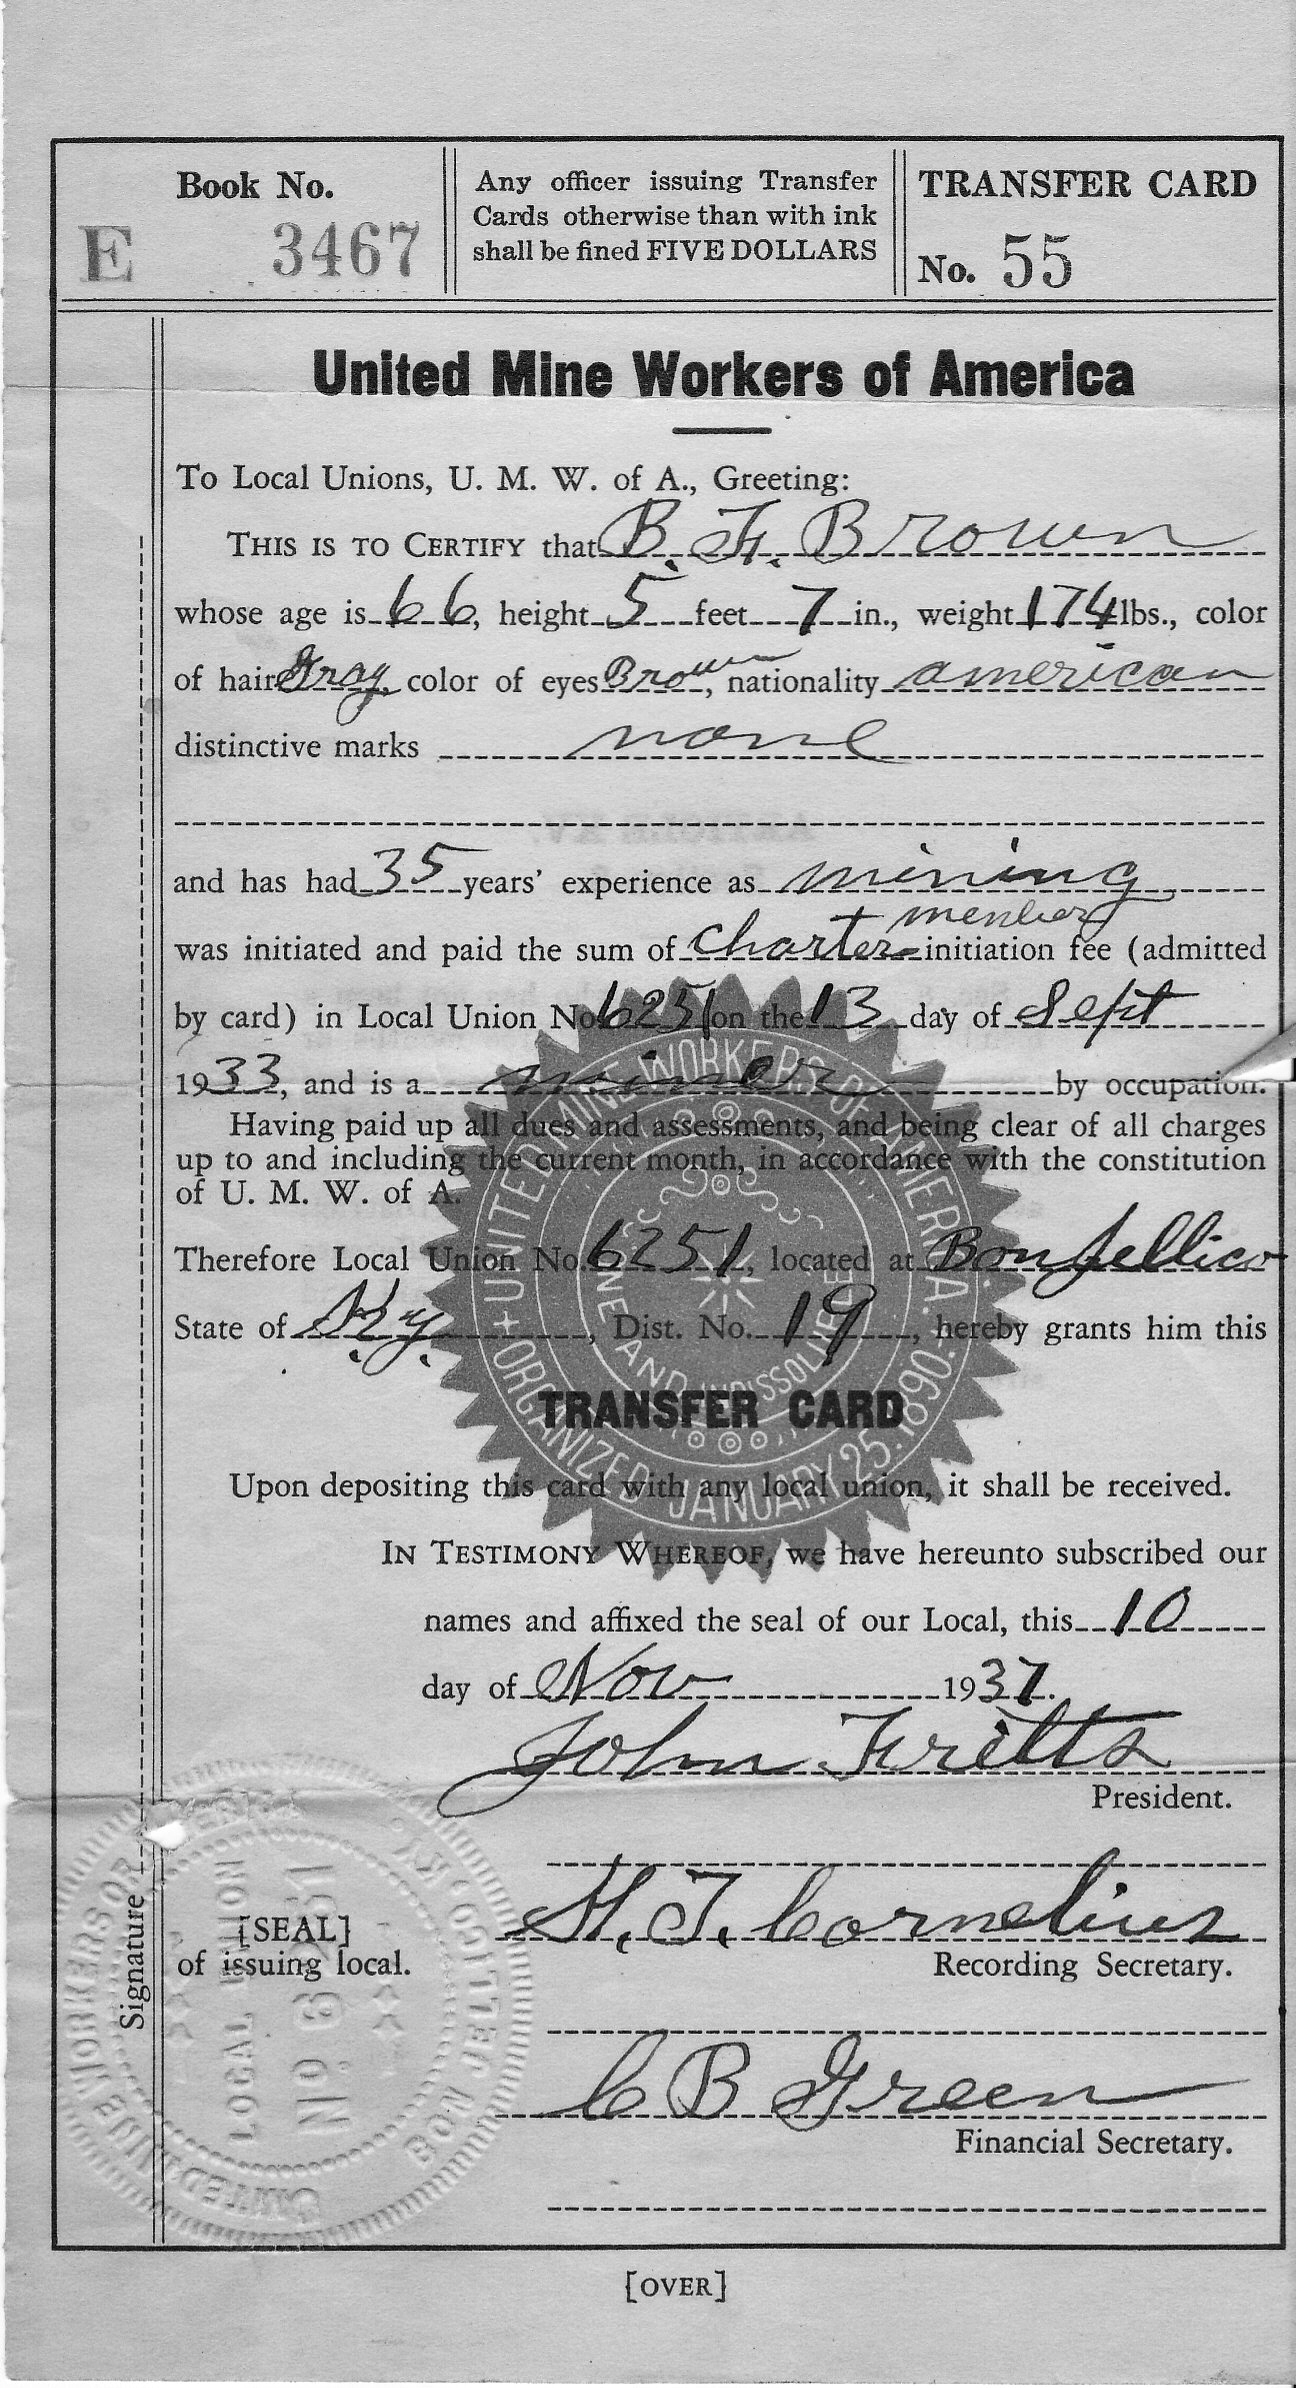 Book No.
E 3467
Any officer issuing Transfer
Cards otherwise than with ink
shall be fined FIVE DOLLARS
TRANSFER CARD
No. 55
United Mine Workers of America
To Local Unions, U. M. W. of A., Greeting:
THIS IS TO CERTIFY that B. F. Brown
whose age is 66, height 5 feet 7 in., weight 174 lbs., color
of hair Gray, color of eyes Brown, nationality american
distinctive marks none
and has had 35 years' experience as mining
was initiated and paid the sum of charter member initiation fee (admitted
by card) in Local Union No. 6251 on the 13 day of Sept
1933, and is a miner by occupation.
Having paid up all dues and assessments, and being clear of all charges
up to and including the current month, in accordance with the constitution
of U. M. W. of A.
Therefore Local Union No. 6251, located at Bonjellico
State of Ky., Dist. No. 19, hereby grants him this
TRANSFER CARD
Upon depositing this card with any local union, it shall be received.
IN TESTIMONY WHEREOF, we have hereunto subscribed our
names and affixed the seal of our Local, this 10
day of Nov 1937.
John Fritts
President.
H. T. Cornelius
Recording Secretary.
C B Green
Financial Secretary.
[SEAL]
of issuing local.
Signature
UNITED MINE WORKERS OF AMERICA.
ORGANIZED JANUARY 25. 1890.
ONE AND INDISSOLIBLE
UNITED MINE WORKERS OF AMERICA
LOCAL UNION
No. 6251
BON JELLICO, KY.
[OVER]